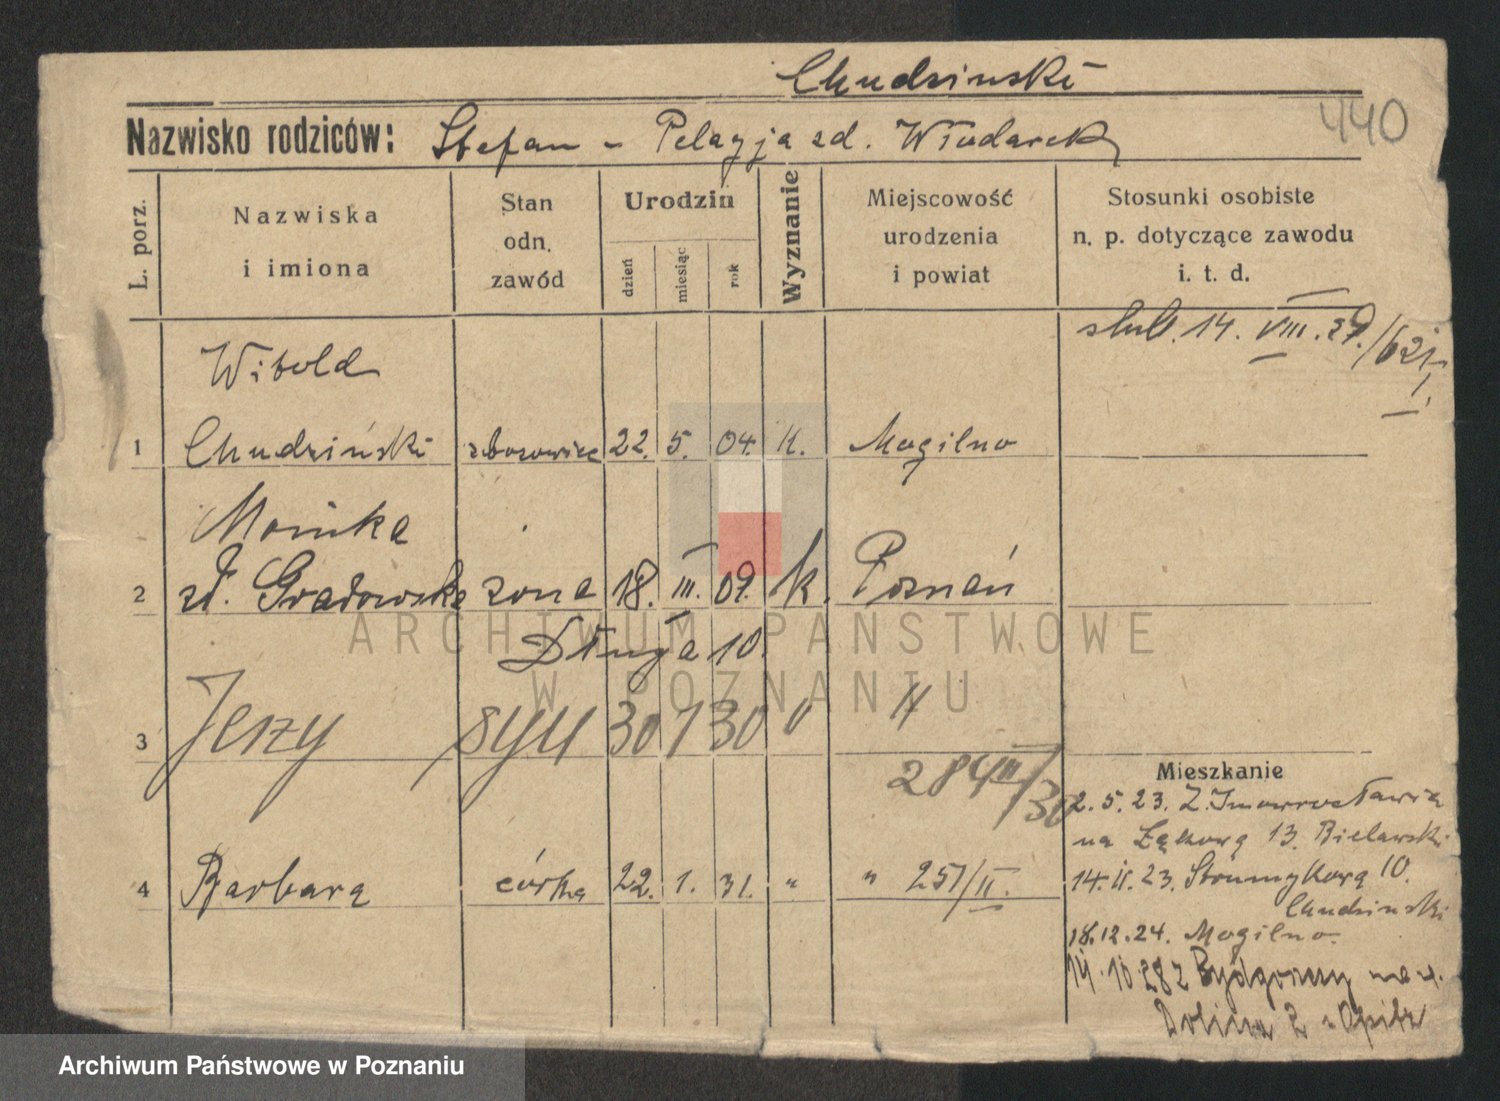 Chudzinski
440
Nazwisko rodziców: Stefan - Pelagja zd. Włodarek
L. porz.
Nazwiska i imiona
Stan odn. zawód
Urodzin
dzień miesiąc rok
Wyznanie
Miejscowość urodzenia i powiat
Stosunki osobiste n. p. dotyczące zawodu i. t. d.
ślub. 14. VIII. 29. /621
I.
Witold
1 Chudziński zbożowiec 22. 5. 04. K. Mogilno
Monika
2 zd. Gradowska żona 18. III. 09. k. Poznań
Długa 10.
3 Jerzy syn 30 1 30 " "
284 II/30
4 Barbara córka 22. 1. 31. " " 251/II.
Mieszkanie
2. 5. 23. Z. Inowrocławia
na Łąkową 13. Bielawski
14. II. 23. Strumykową 10.
Chudzinski
18.12.24. Mogilno.
14.10.28 z Bydgoszczy na
Dolina 2 Opitz
ARCHIWUM PAŃSTWOWE
W POZNANIU
Archiwum Państwowe w Poznaniu